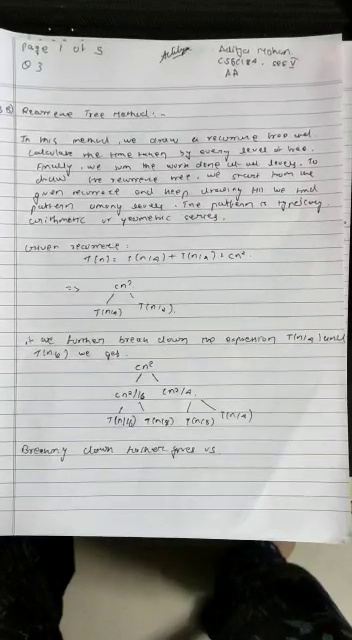 Page 1 of 5
Aditya Mohan
Q3
CSE
AA
Recurrence Tree Method :-
In this method, we draw a recurrence tree and
calculate the time taken by every level of tree.
Finally, we sum the work done at all levels. To
draw the recurrence tree, we start from the
given recurrence and keep drawing till we find
pattern among levels. The pattern is typically
arithmetic or geometric series.
Given recurrence:
T(n) = T(n/4) + T(n/2) + cn²
=> cn²
T(n/4) T(n/2)
If we further break down the expression T(n/4) and
we get
cn²
cn²/16 cn²/4
T(n/16) T(n/8) T(n/8) T(n/4)
Breaking down further gives us